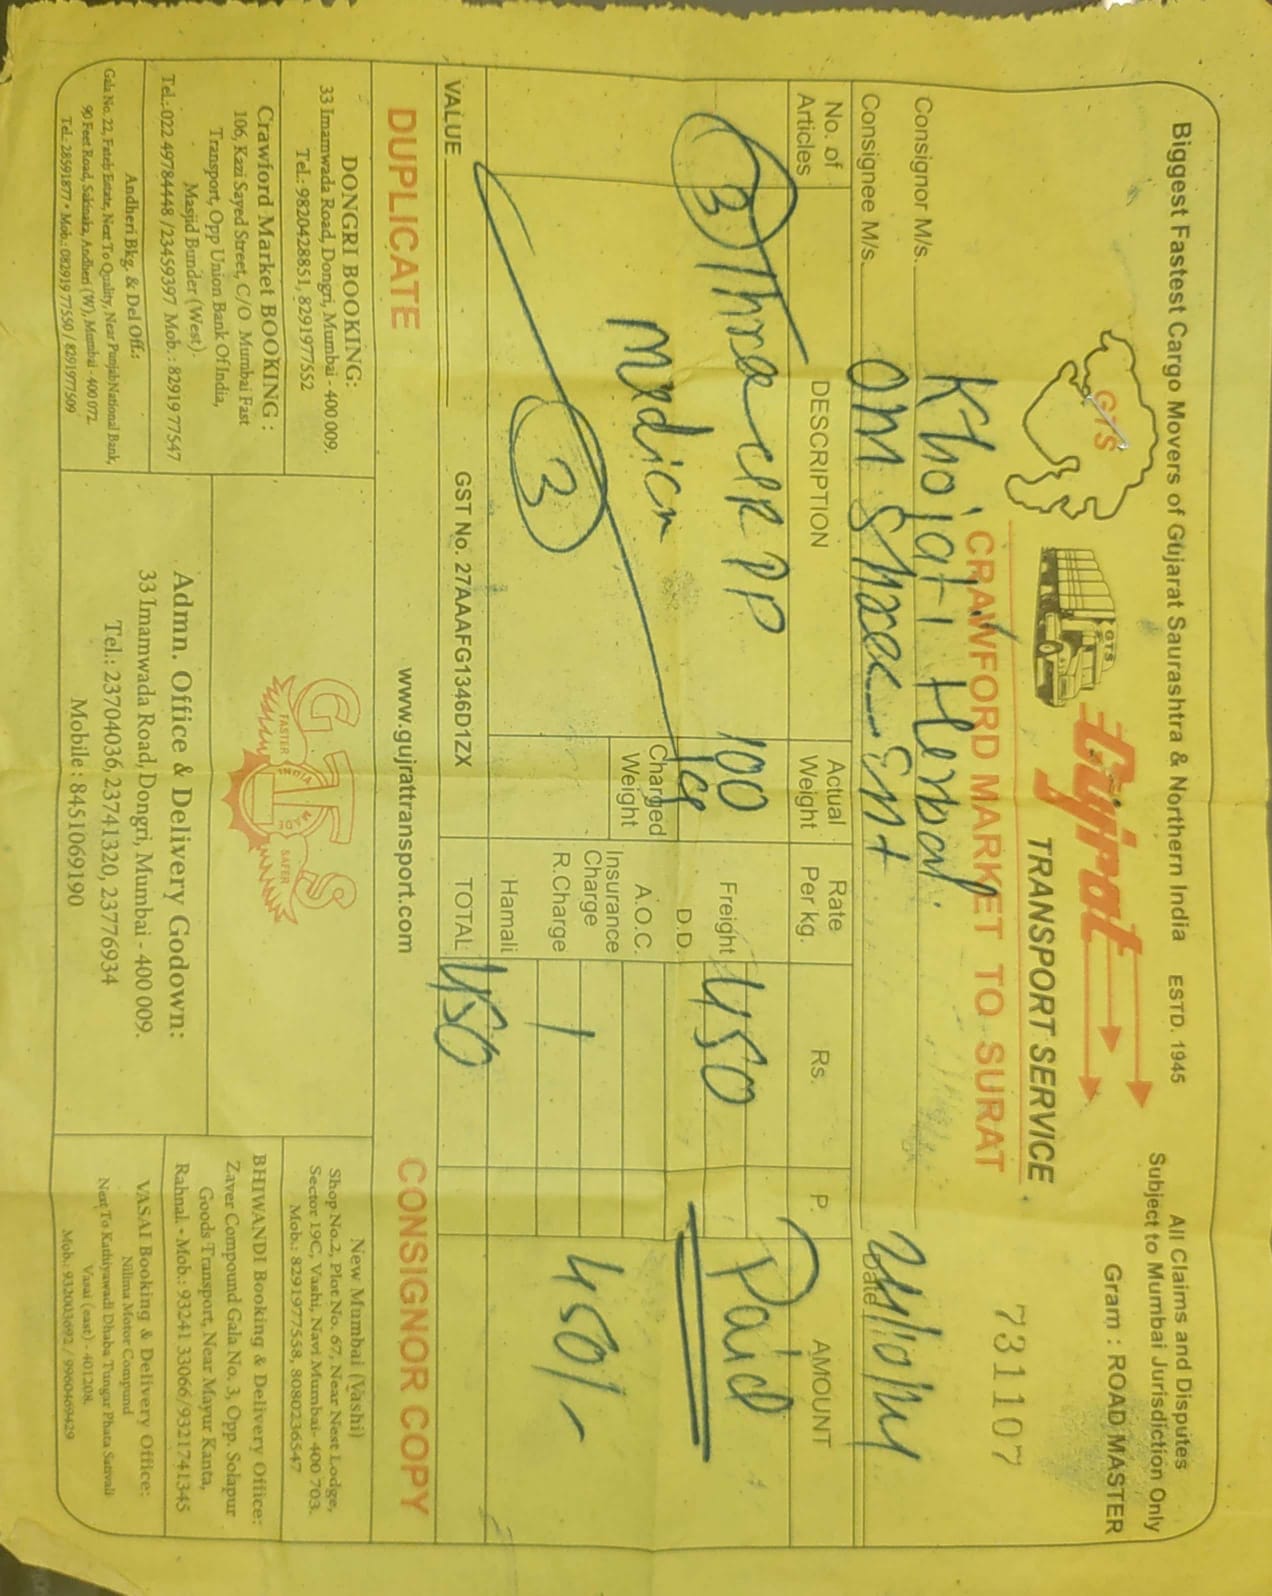 Biggest Fastest Cargo Movers of Gujarat Saurashtra & Northern India ESTD. 1945
All Claims and Disputes
Subject to Mumbai Jurisdiction Only
Gram : ROAD MASTER
GTS
GTS
Gujrat
TRANSPORT SERVICE
CRAWFORD MARKET TO SURAT
731107
Consignor M/s. Khojati Herbal.
Consignee M/s. Om Shree Ent
Date
No. of Articles
DESCRIPTION
Actual Weight
Rate Per kg.
Rs.
P.
AMOUNT
3 Three PP
100
Freight 450
Paid
D.D.
Charged Weight
A.O.C.
Insurance Charge
R.Charge
450/-
3
Hamali
VALUE
GST No. 27AAAFG1346D1ZX
TOTAL 450
DUPLICATE
www.gujrattransport.com
CONSIGNOR COPY
DONGRI BOOKING:
33 Imamwada Road, Dongri, Mumbai - 400 009.
Tel.: 9820428851, 8291977552
Crawford Market BOOKING :
106, Kazi Sayed Street, C/O Mumbai Fast
Transport, Opp Union Bank Of India,
Masjid Bunder (West).
Tel.: 022 49784448 / 23459397 Mob. : 82919 77547
Andheri Bkg. & Del Off.:
Gala No. 22, Fateh Estate, Next To Quality, Near Punjab National Bank,
90 Feet Road, Sakinaka, Andheri (W), Mumbai - 400 072.
Tel.: 28591877 • Mob.: 082919 77550 / 8291977509
GTS
FASTER
INDIA
SAFER
Admn. Office & Delivery Godown:
33 Imamwada Road, Dongri, Mumbai - 400 009.
Tel.: 23704036, 23741320, 23776934
Mobile : 8451069190
New Mumbai (Vashi)
Shop No.2, Plot No. 67, Near Nest Lodge,
Sector 19C, Vashi, Navi Mumbai- 400 703.
Mob.: 8291977558, 8080236547
BHIWANDI Booking & Delivery Office:
Zaver Compound Gala No. 3, Opp. Solapur
Goods Transport, Near Mayur Kanta,
Rahnal. • Mob.: 93241 33066/9321741345
VASAI Booking & Delivery Office:
Nilima Motor Compund
Next To Kathiyawadi Dhaba Tungar Phata Sativali
Vasai (east) - 401208.
Mob.: 932003692 / 9960469429